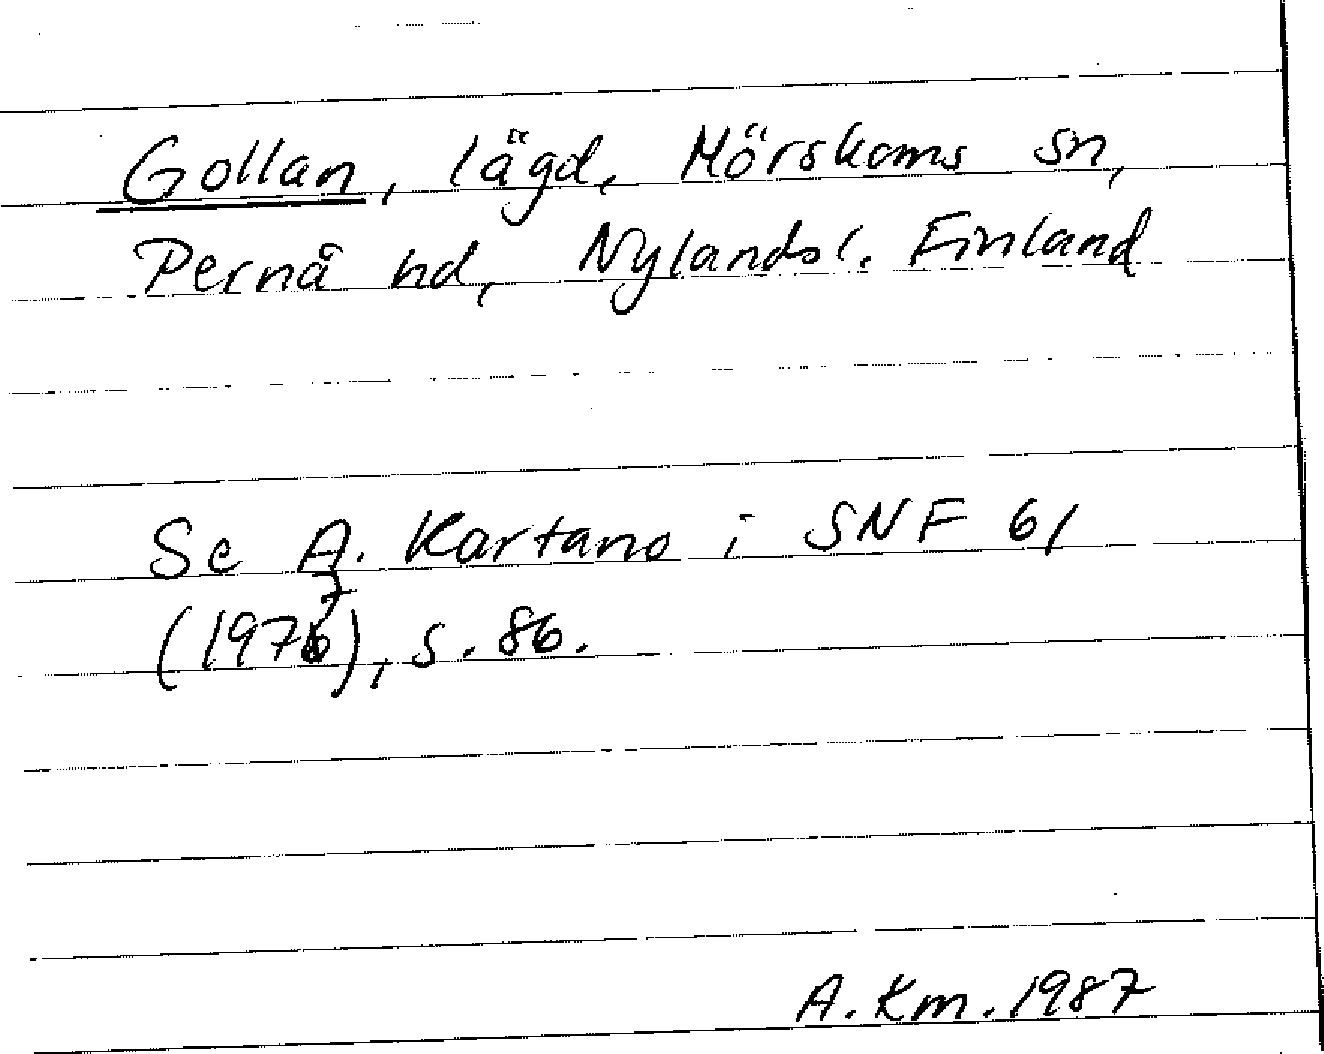 Gollan, lägd, Mörskoms sn,
Pernå hd, Nylandsl. Finland
Se A. Kartano i SNF 61
(1977), s. 86.
A. Km. 1987